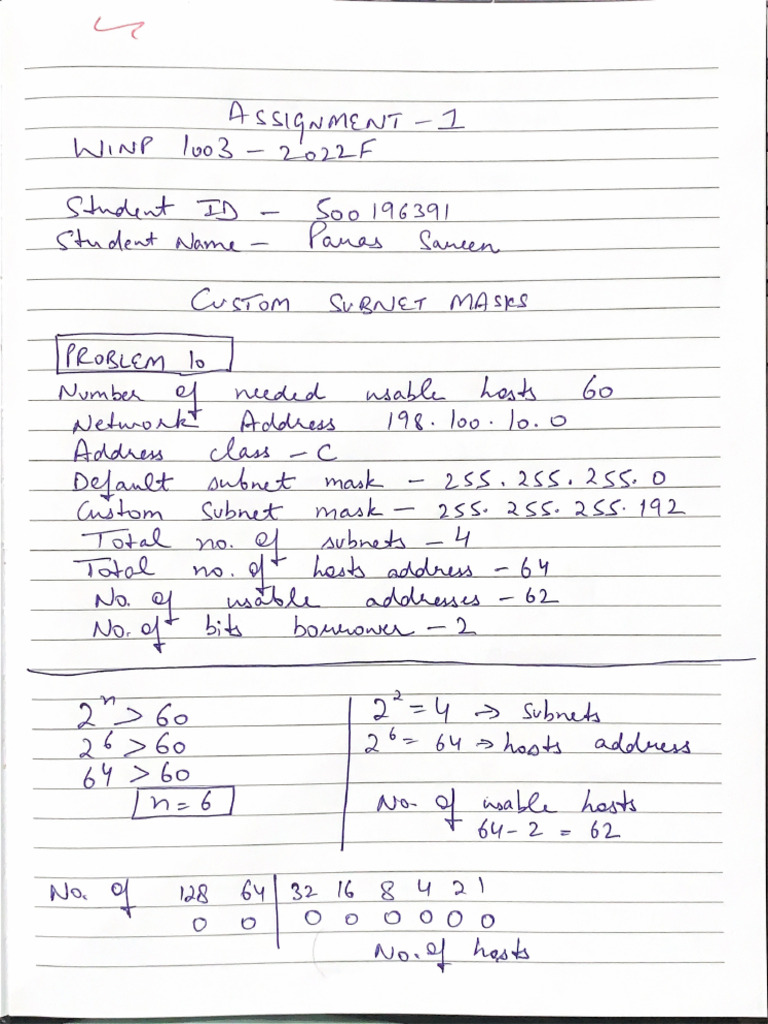 ASSIGNMENT - 1
WINP 1003 - 2022F
Student ID - 500196391
Student Name - Paras Sareen
CUSTOM SUBNET MASKS
PROBLEM 10
Number of needed usable hosts 60
Network Address 198.100.10.0
Address class - C
Default subnet mask - 255.255.255.0
Custom Subnet mask - 255.255.255.192
Total no. of subnets - 4
Total no. of hosts address - 64
No. of usable addresses - 62
No. of bits borrower - 2
2^n > 60
2^6 > 60
64 > 60
n = 6
2^2 = 4 → Subnets
2^6 = 64 → hosts address
No. of usable hosts
64 - 2 = 62
No. of 128 64 | 32 16 8 4 2 1
0 0 | 0 0 0 0 0 0
No. of hosts